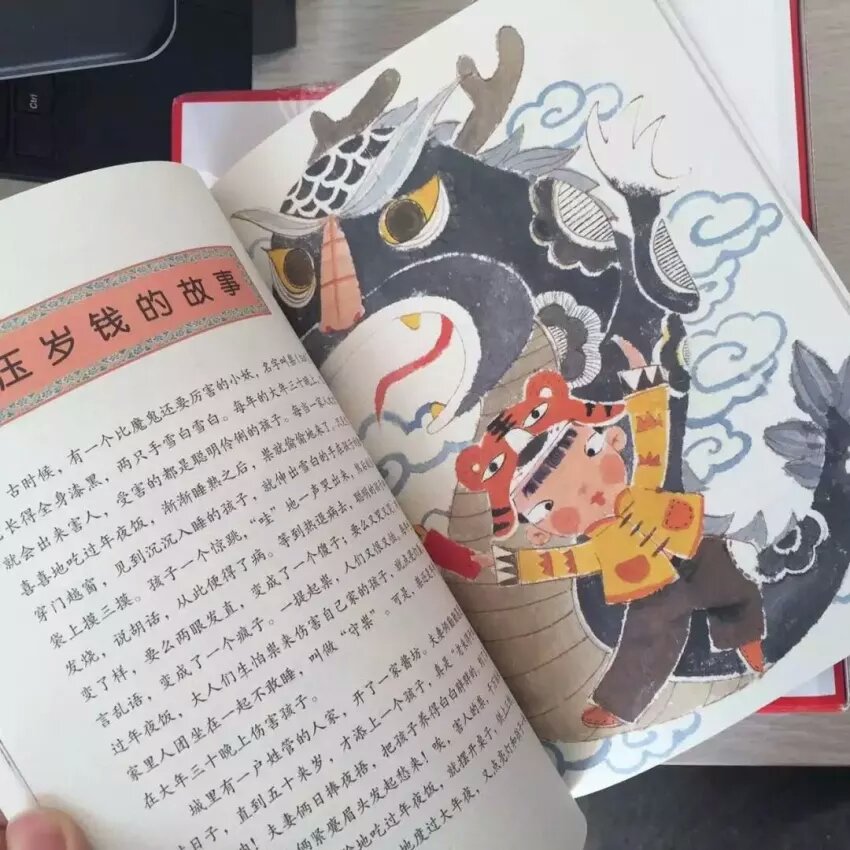 Ctrl
压岁钱的故事
古时候，有一个比魔鬼还要厉害的小妖，名字叫祟
长得全身漆黑，两只手雪白雪白。每年的大年三十晚上，
就会出来害人，受害的都是聪明伶俐的孩子。每当一家人
喜喜地吃过年夜饭，渐渐睡熟之后，祟就偷偷地来了，
穿门越窗，见到沉沉入睡的孩子，就伸出雪白的手在
袋上摸三摸。孩子一个惊跳，“哇”地一声哭出来，
发烧，说胡话，从此便得了病。等到热退病去，聪明的
变了样，要么两眼发直，变成了一个傻子；要么又哭又
言乱语，变成了一个疯子。一提起祟，人们又恨又怕。
过年夜饭，大人们生怕祟来伤害自己家的孩子，就点
家里人团坐在一起不敢睡，叫做“守祟”。可是，祟还是
在大年三十晚上伤害孩子。
城里有一户姓管的人家，开了一家酱坊。夫妻俩
日子，直到五十来岁，才添上一个孩子，真是
！夫妻俩日捧夜捂，把孩子养得白白胖胖的，
俩紧蹙眉头发起愁来！唉，害人的祟，
地吃过年夜饭，就摆开桌子，
地度过大年夜，又点亮灯